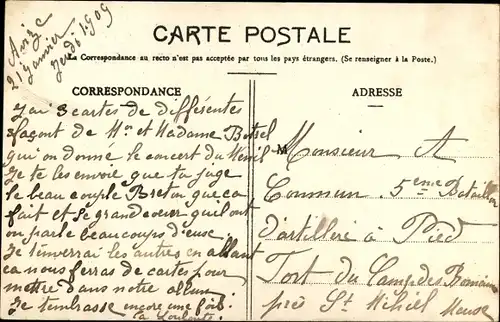 Avize
21 Janvier
Jeudi 1909
CARTE POSTALE
La Correspondance au recto n'est pas acceptée par tous les pays étrangers. (Se renseigner à la Poste.)
CORRESPONDANCE
J'ai 3 cartes de différentes
façont de Mr et Madame Botrel
qui on donné le concert du Mesnil
Je te les envoie que tu juge
le beau couple Breton que ca
fait et se grand coeur qu'il ont
on parle beaucoups d'euse
Je t'enverrai les autres en allant
ca nous ferras de cartes pour
mettre dans notre album
Je t'embrasse encore une fois
ta Louloute
ADRESSE
M Monsieur A
Commun 5eme Bataillon
d'artillerie à Pied
Fort du Camp des Romains
près St Mihiel Meuse